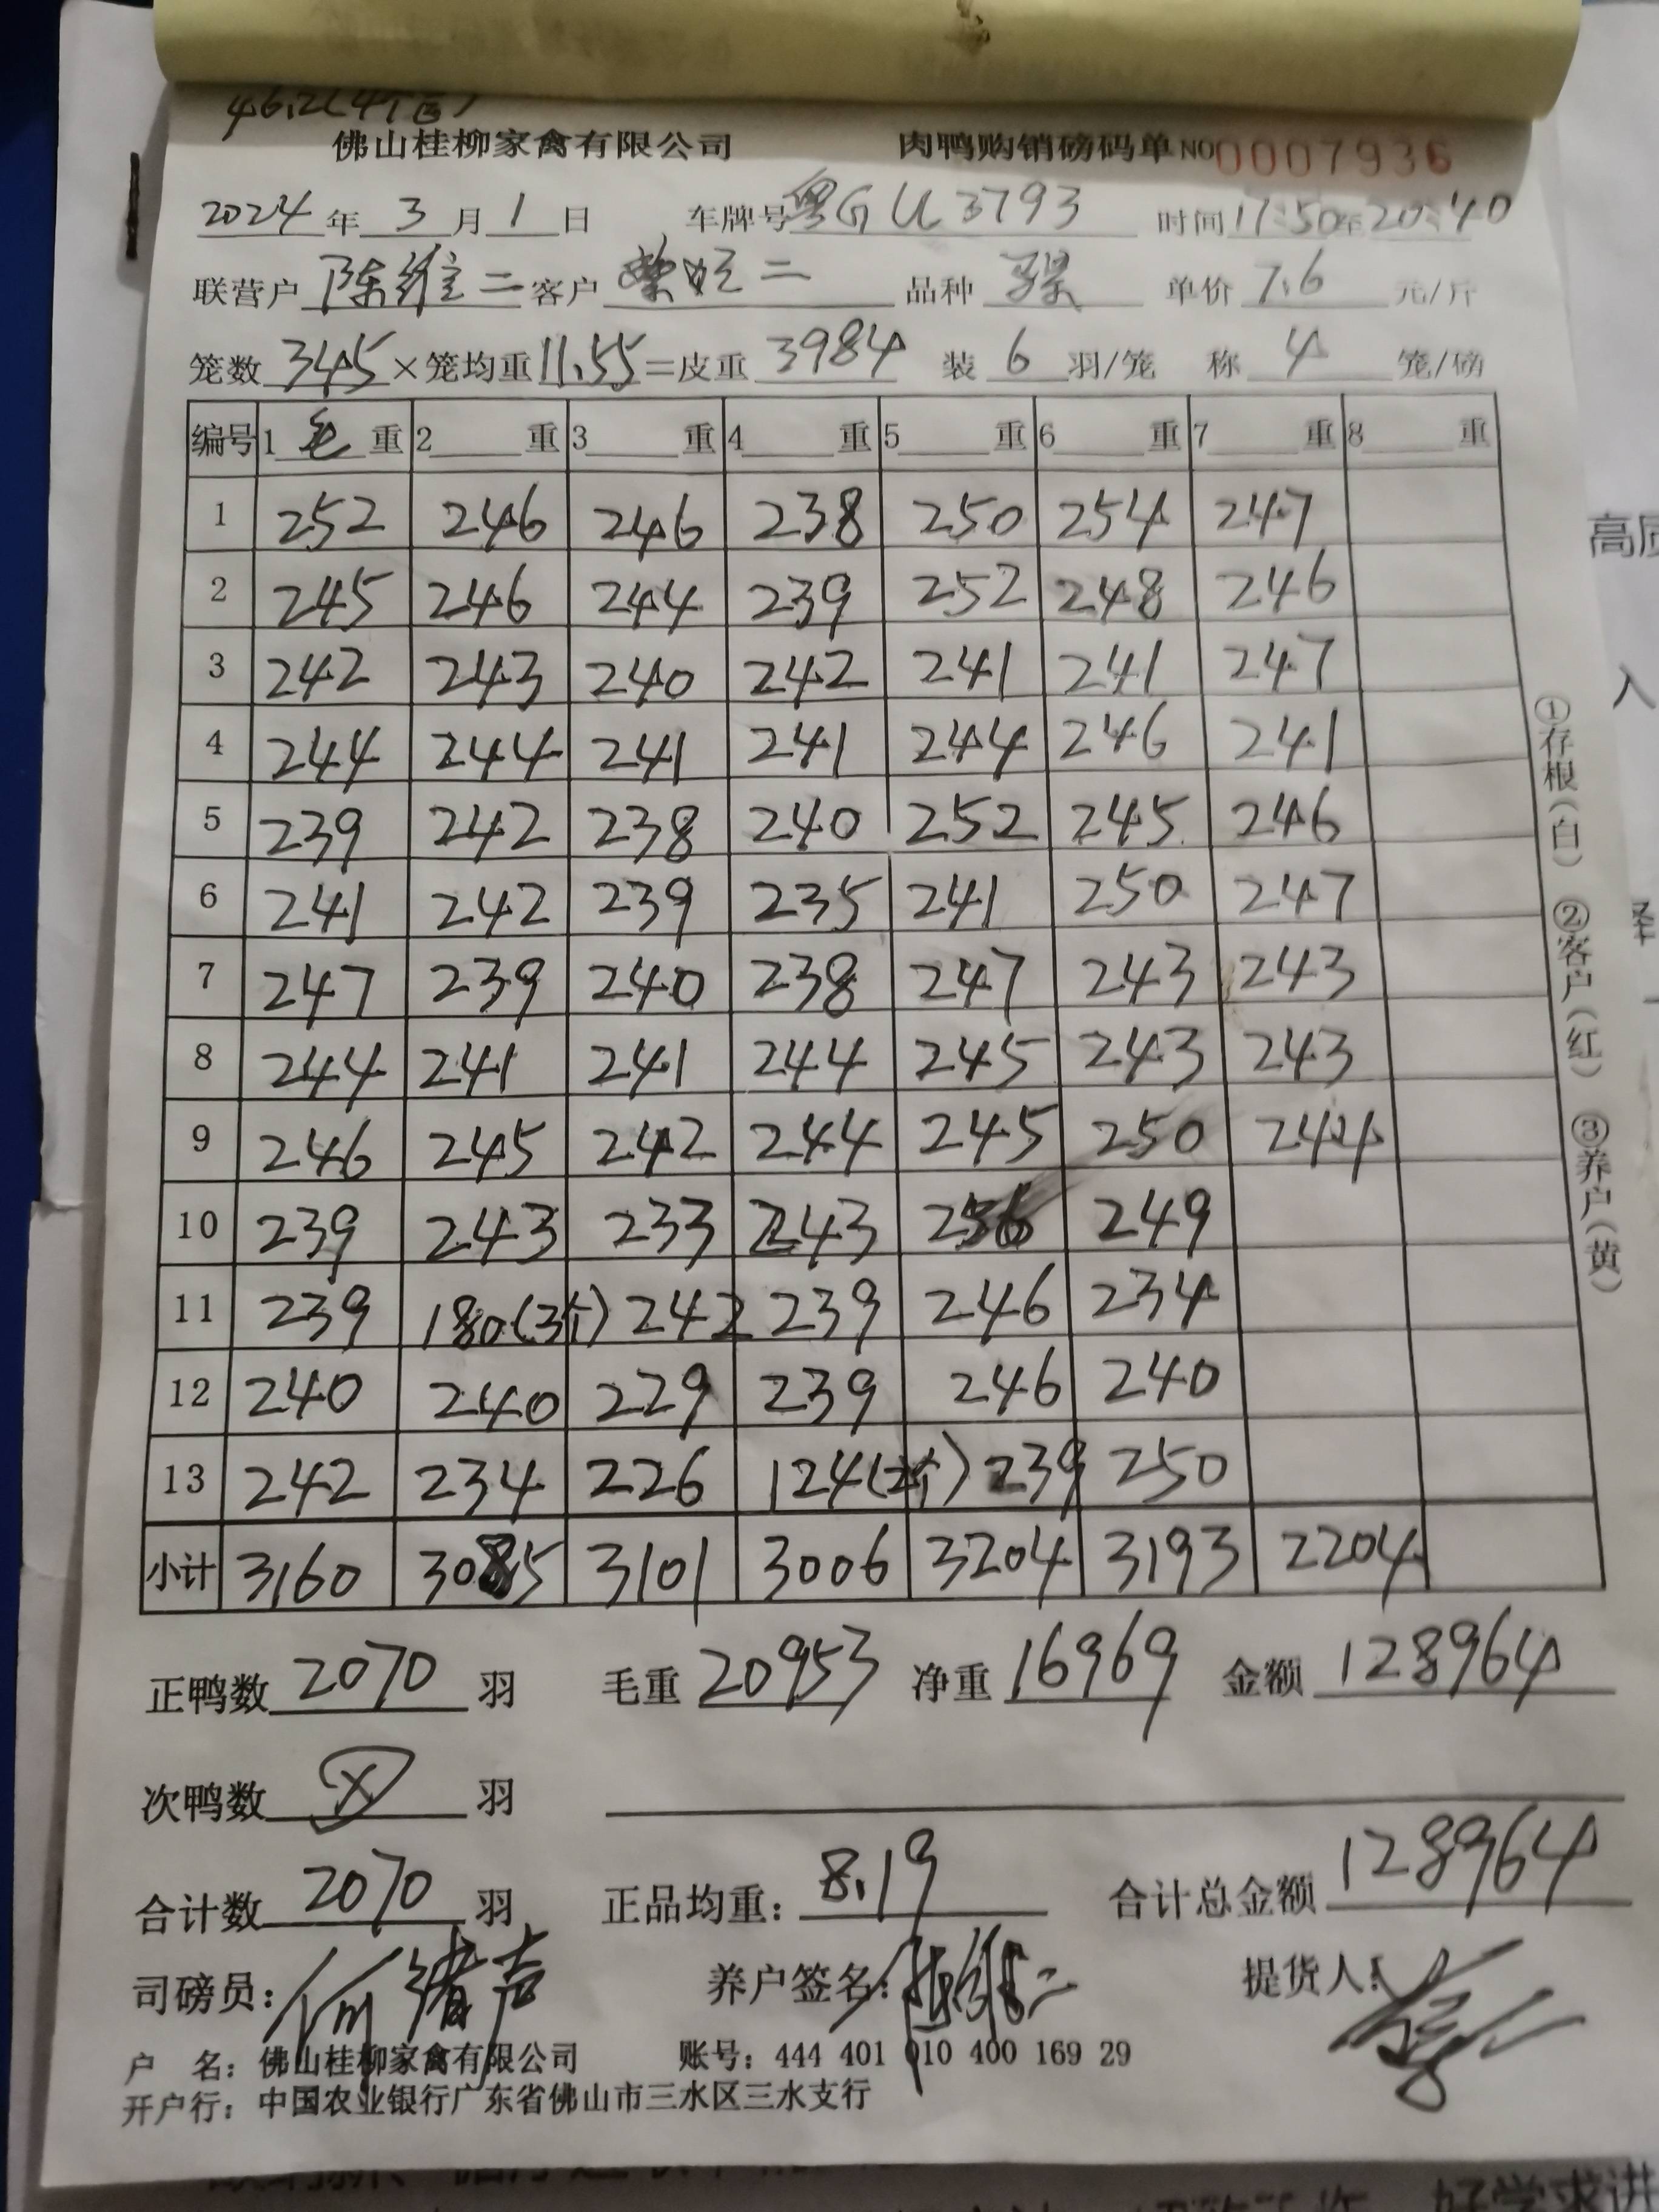 46.2(4个
佛山桂柳家禽有限公司 肉鸭购销磅码单 NO 0007936
2024 年 3 月 1 日 车牌号 粤GU3793 时间 17:50至20:40
联营户 陈维二 客户 二 品种 单价 7.6 元/斤
笼数 345 ×笼均重 11.55 =皮重 3984 装 6 羽/笼 称 4 笼/磅
编号 1 毛 重 2 重 3 重 4 重 5 重 6 重 7 重 8 重
1 252 246 246 238 250 254 247
2 245 246 244 239 252 248 246
3 242 243 240 242 241 241 247
4 244 244 241 241 244 246 241
5 239 242 238 240 252 245 246
6 241 242 239 235 241 250 247
7 247 239 240 238 247 243 243
8 244 241 241 244 245 243 243
9 246 245 242 244 245 250 244
10 239 243 233 243 256 249
11 239 180(3个) 242 239 246 234
12 240 240 229 239 246 240
13 242 234 226 124(2个) 239 250
小计 3160 3085 3101 3006 3204 3193 2204
正鸭数 2070 羽 毛重 20953 净重 16969 金额 128964
次鸭数 羽
合计数 2070 羽 正品均重: 8.19 合计总金额 128964
司磅员: 养户签名: 陈维二 提货人:
户 名: 佛山桂柳家禽有限公司 账号: 444 401 010 400 169 29
开户行: 中国农业银行广东省佛山市三水区三水支行
①存根(白) ②客户(红) ③养户(黄)
高质
入
好学求进